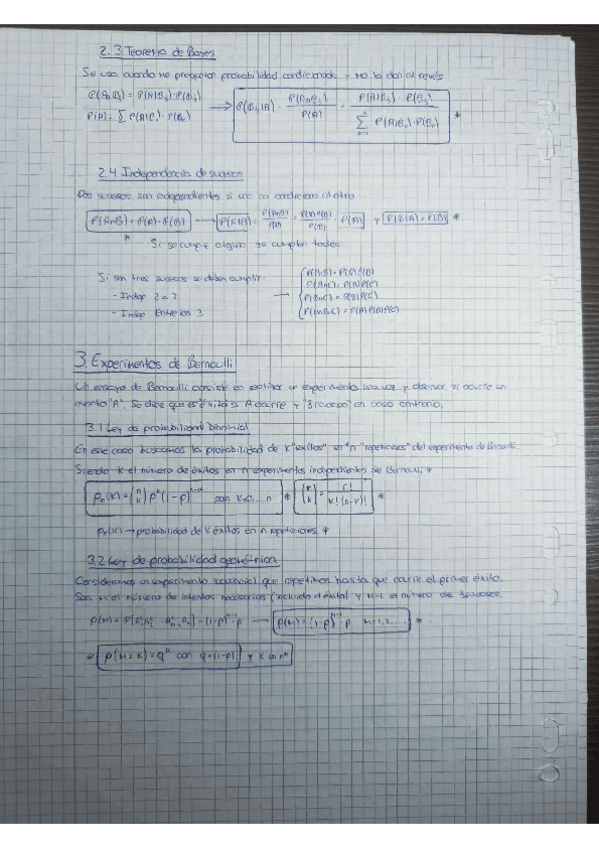 2.3 Teorema de Bayes
Se usa cuando me preguntan probabilidad condicionada y me la dan al revés
P(A∩Bj) = P(A|Bj)·P(Bj)
P(A) = ∑ P(A|Bi)·P(Bi)
→ P(Bj|A) = P(A∩Bj) / P(A) = P(A|Bj)·P(Bj) / ∑ P(A|Bk)·P(Bk) *
2.4 Independencia de sucesos
Dos sucesos son independientes si uno no condiciona al otro
P(A∩B) = P(A)·P(B) → P(A|B) = P(A∩B) / P(B) = P(A)P(B) / P(B) = P(A) y P(B|A) = P(B) *
Si se cumple alguna se cumplen todas
Si son tres sucesos se deben cumplir:
- Indep 2 a 2
- Indep Entre los 3
→ P(A∩B) = P(A)P(B)
P(A∩C) = P(A)P(C)
P(B∩C) = P(B)P(C)
P(A∩B∩C) = P(A)P(B)P(C)
3. Experimentos de Bernoulli
Un ensayo de Bernoulli consiste en realizar un experimento una vez y observar si ocurre un
evento "A". Se dice que es "éxito" si A ocurre y "fracaso" en caso contrario.
3.1 Ley de probabilidad binomial
En este caso buscamos la probabilidad de k "éxitos" en "n" repeticiones del experimento de Bernoulli.
Siendo k el número de éxitos en n experimentos independientes de Bernoulli *
Pn(k) = (n k) p^k (1-p)^n-k con k=0,...n * (n k) = n! / k!(n-k)! *
pn(k) → probabilidad de k éxitos en n repeticiones. *
3.2 Ley de probabilidad geométrica
Consideramos un experimento secuencial que repetimos hasta que ocurre el primer éxito.
Sea m el número de intentos necesarios (incluido el éxito) y m-1 el número de fracasos.
= (1-p)^m-1·p → p(m) = (1-p)^m-1·p m=1,2,... *
con q=(1-p)